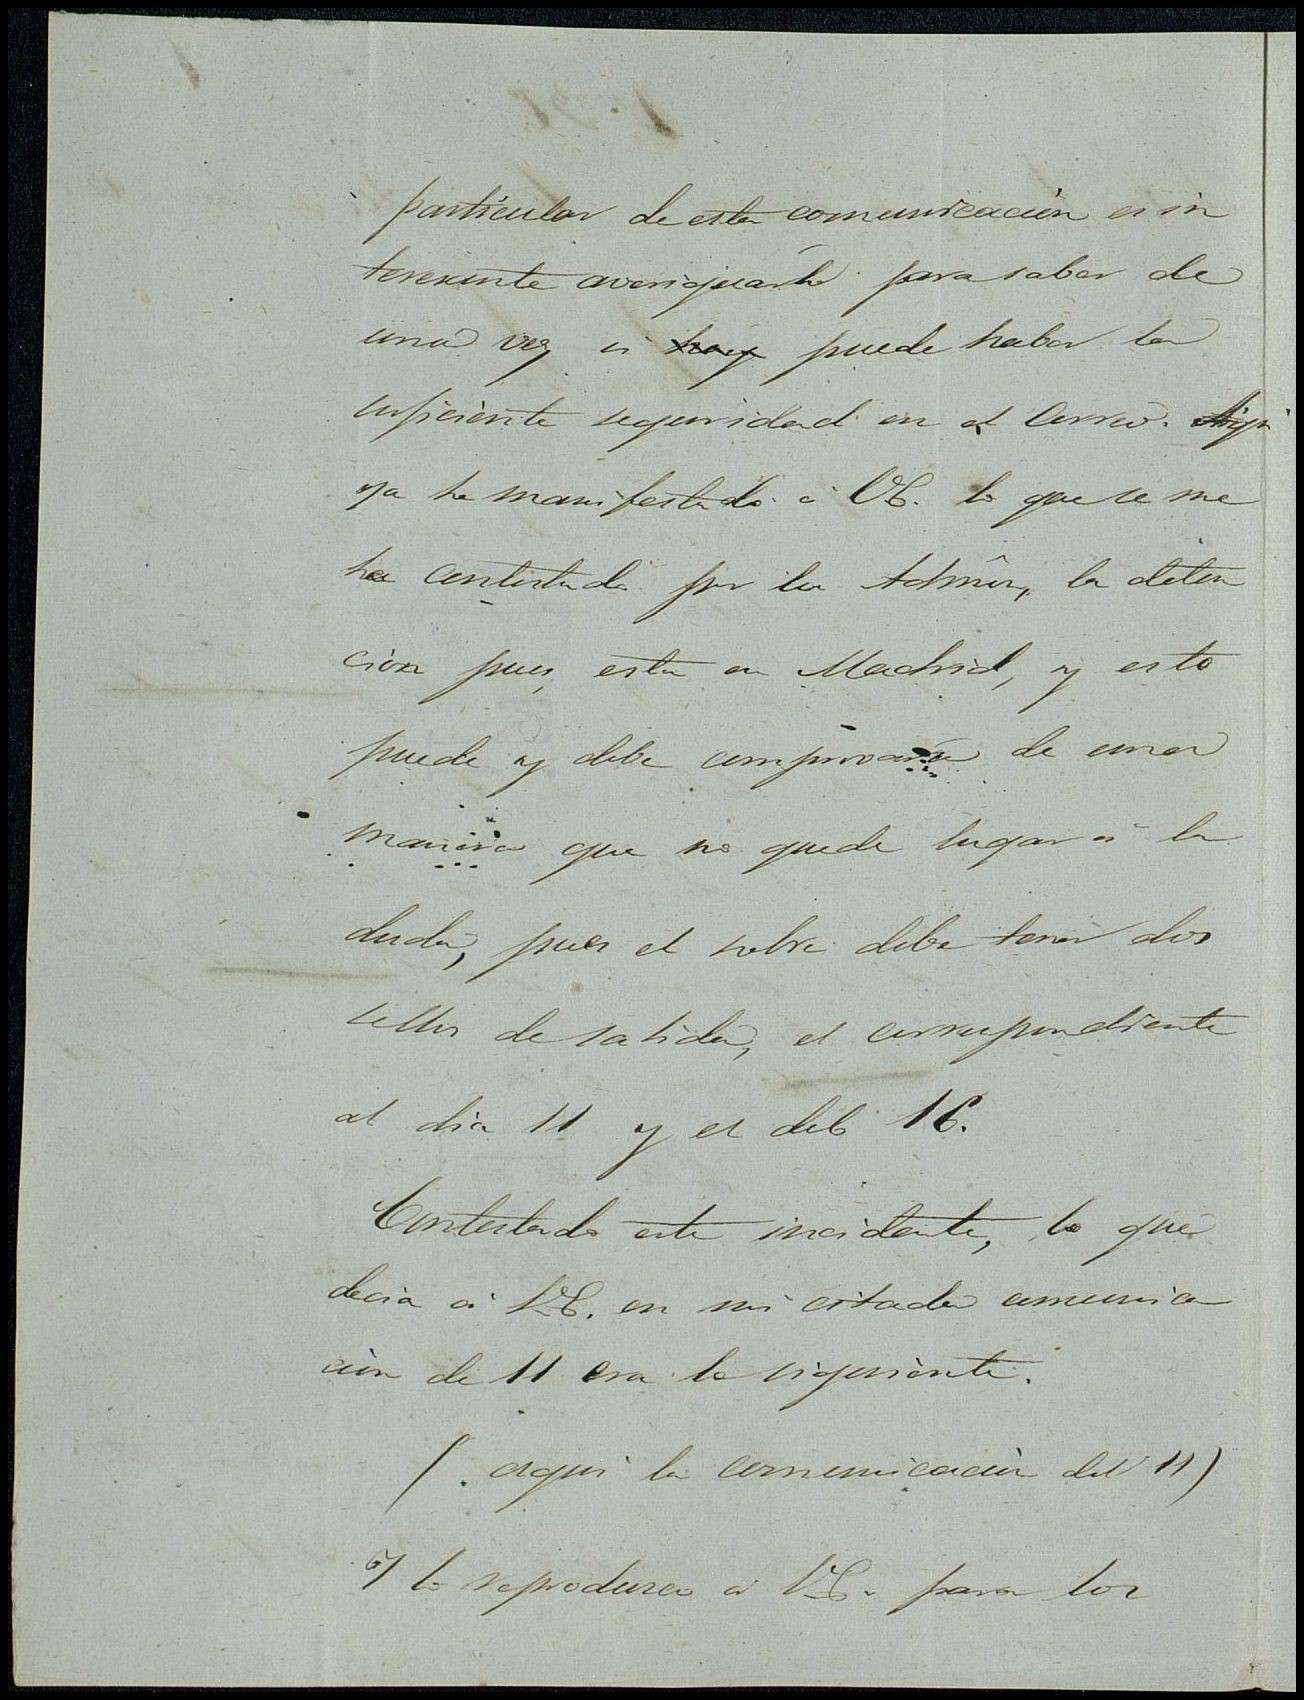 particular de esta comunicación es in
teresante averiguarlo para saber de
una vez si hay puede haber la
suficiente seguridad en el correo.
ya he manifestado á VE. lo que se me
ha contestado por la Admôn, la deten
cion pues, esta en Madrid, y esto
puede y debe comprovarse de una
manera que no quede lugar á la
duda, pues el sobre debe tener dos
sellos de salida, el correspondiente
al dia 11 y el del 16.
Contestado este incidente, lo que
decia á VE. en mi citada comunica
ción de 11 era lo siguiente.
( aqui la comunicación del 11)
y lo reproduzco á VE. para los